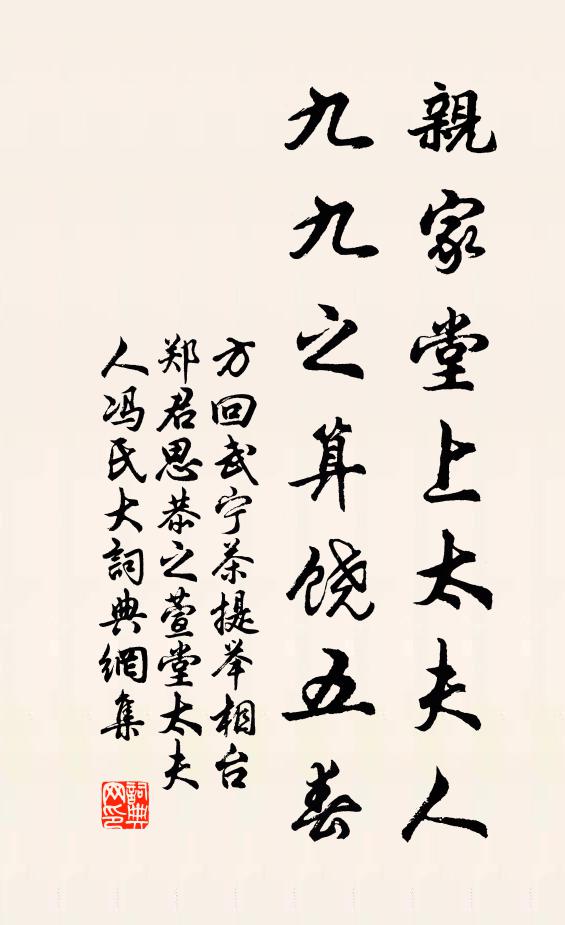 親家堂上太夫人
九九之算饶五春
方回武宁茶提举相台
郑君思恭之萱堂太夫
人冯氏大詞典網集
詞典
网印